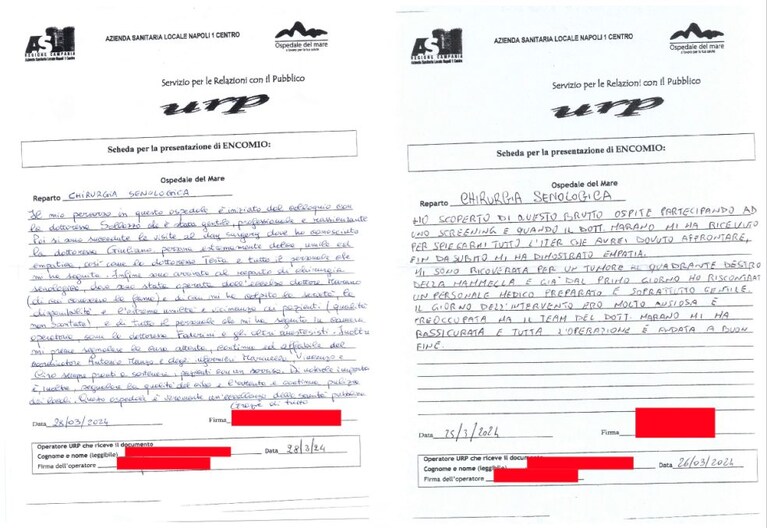 ASL
REGIONE CAMPANIA
Azienda Sanitaria Locale Napoli 1 Centro
AZIENDA SANITARIA LOCALE NAPOLI 1 CENTRO
Ospedale del mare
Servizio per le Relazioni con il Pubblico
urp
Scheda per la presentazione di ENCOMIO:
Ospedale del Mare
Reparto CHIRURGIA SENOLOGICA
Il mio percorso in questo ospedale è iniziato dal colloquio con
la dottoressa che è stata gentile, professionale e rassicurante
Poi si sono susseguite le visite al day surgery dove ho conosciuto
la dottoressa Giuliano persona estremamente dolce, umile ed
empatica, così come la dottoressa Testa e tutto il personale che
mi ha seguito. Infine sono arrivata al reparto di chirurgia
senologica, dove sono stata operata dall'eccelso dottore Marano
(di cui conoscevo la fama) e di cui mi ha colpito la serietà, la
disponibilità e l'estrema umiltà e vicinanza ai pazienti (qualità
non scontate) e di tutto il personale che mi ha seguito in camera
operatoria come la dottoressa e gli altri anestesisti. Inoltre
mi preme segnalare la cura, continua ed affettuosa del
coordinatore Antonio e degli infermieri Manuela, Vincenzo e
Ciro sempre pronti a sostenere i pazienti con un sorriso. Di notevole importanza
è, inoltre, segnalare la qualità del cibo e l'attenta e continua pulizia
dei locali. Questo ospedale è veramente un'eccellenza della sanità pubblica
Grazie di tutto
Data 28/03/2024 Firma
Operatore URP che riceve il documento
Cognome e nome (leggibile) Data 28/3/24
Firma dell'operatore
ASL
REGIONE CAMPANIA
Azienda Sanitaria Locale Napoli 1 Centro
AZIENDA SANITARIA LOCALE NAPOLI 1 CENTRO
Ospedale del mare
Servizio per le Relazioni con il Pubblico
urp
Scheda per la presentazione di ENCOMIO:
Ospedale del Mare
Reparto CHIRURGIA SENOLOGICA
HO SCOPERTO DI QUESTO BRUTTO OSPITE PARTECIPANDO AD
UNO SCREENING E QUANDO IL DOTT. MARANO MI HA RICEVUTO
PER SPIEGARMI TUTTO L'ITER CHE AVREI DOVUTO AFFRONTARE,
FIN DA SUBITO MI HA DIMOSTRATO EMPATIA.
MI SONO RICOVERATA PER UN TUMORE AL QUADRANTE DESTRO
DELLA MAMMELLA E GIÀ DAL PRIMO GIORNO HO RISCONTRATO
UN PERSONALE MEDICO PREPARATO E SOPRATTUTTO GENTILE.
IL GIORNO DELL'INTERVENTO ERO MOLTO ANSIOSA E
PREOCCUPATA MA IL TEAM DEL DOTT. MARANO MI HA
RASSICURATA E TUTTA L'OPERAZIONE È ANDATA A BUON
FINE.
Data 25/3/2024 Firma
Operatore URP che riceve il documento
Cognome e nome (leggibile) Data 26/03/2024
Firma dell'operatore